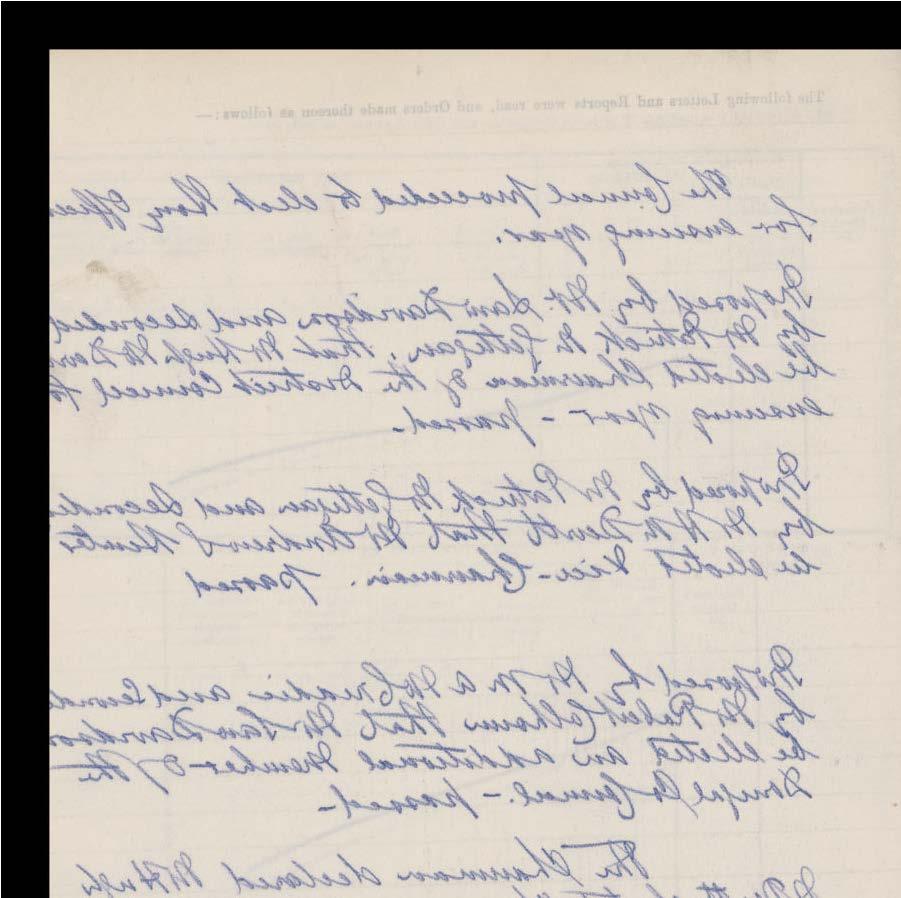 The following Letters and Reports were read, and Orders made thereon as follows:—
The Council proceeded to elect Hony Officers
for ensuing year.
Proposed by Mr. Sam Davidson and seconded
by Mr Patrick McGettigan, that Mr Hugh
be elected Chairman of the District Council for
ensuing year - passed.
Proposed by Mr Patrick McGettigan and Seconded
by Mr that Mr Andrew
be elected Vice-Chairman. passed
Proposed by Mr and Seconded
by Mr Robert Calhoun that Mr Sam Davidson
be elected an additional Member of the
Donegal Co Council. - passed -
The Chairman declared Mr Hugh